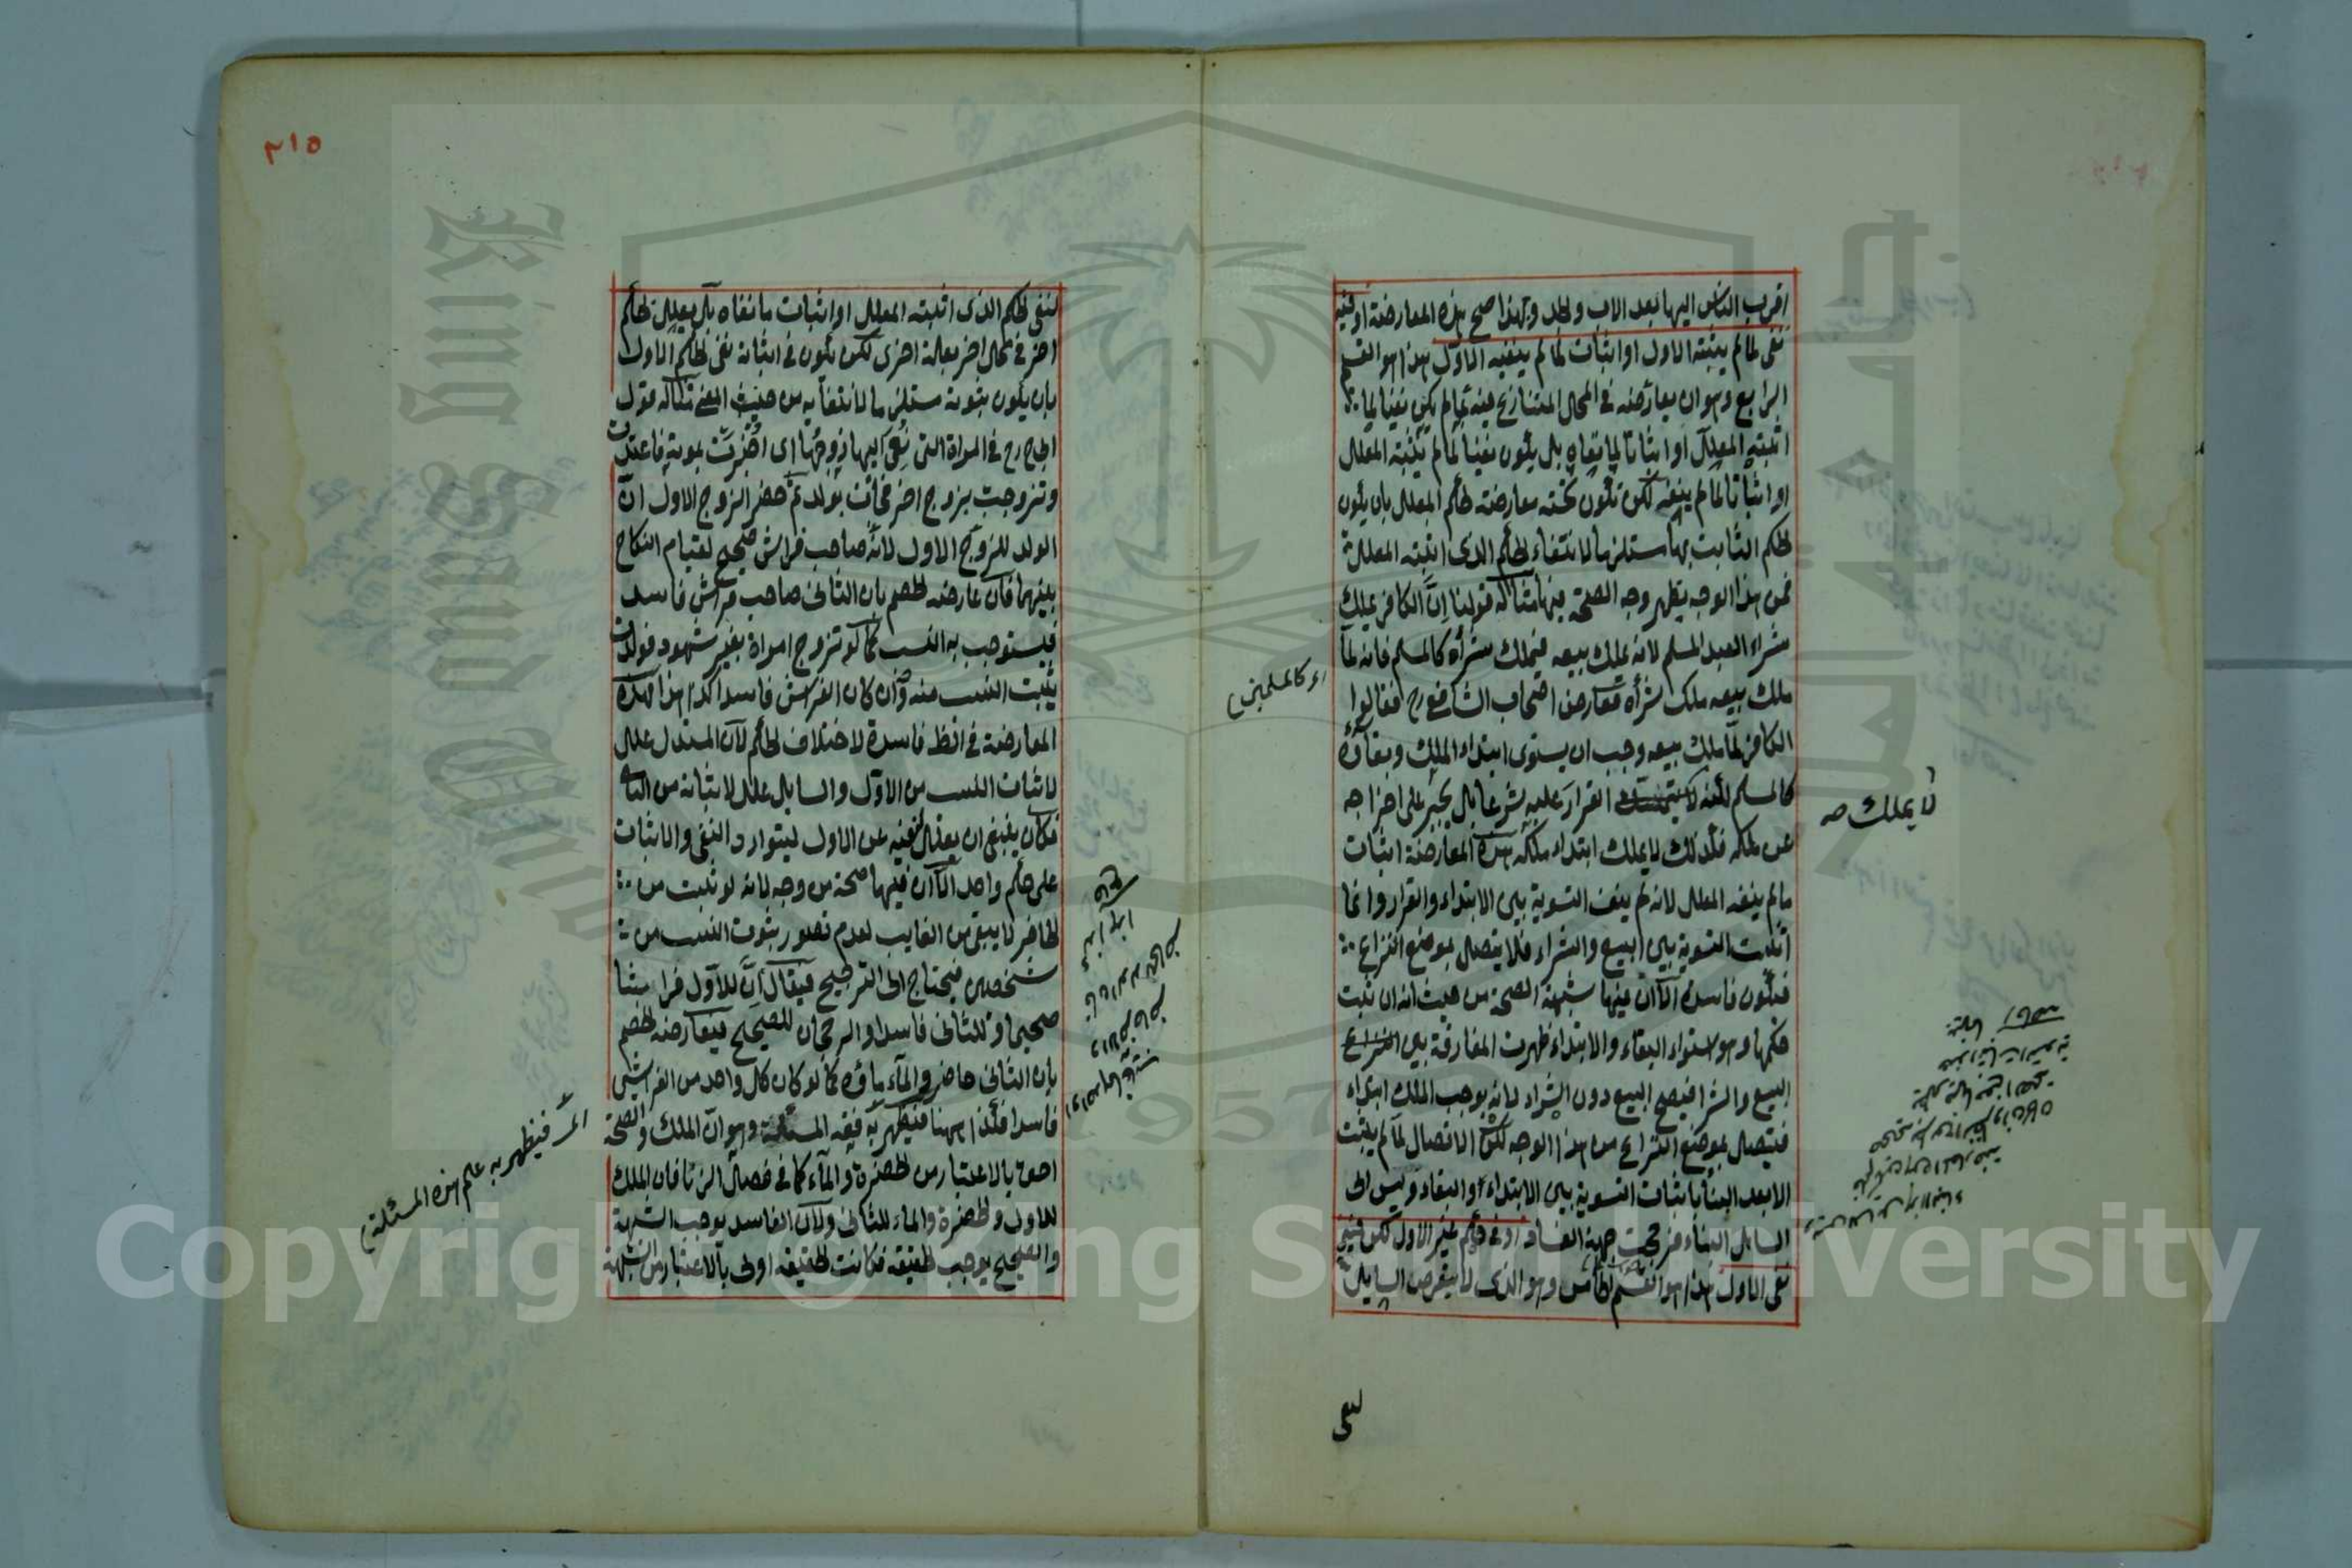 اقرب الناس اليها بعد الاب والجد وبهذا صح هذه المعارضة او فيه
نفى لما لم يثبته الاول او اثبات لما لم ينفيه الاول هذا هو القسم
الرابع وهو ان يعارضه في المحل المتنازع فيه بما لم يكن نفيا لما
اثبته المعلل او اثباتا لما نفاه بل يكون نفيا لما لم يثبته المعلل
او اثباتا لما لم ينفه لكن تكون تحته معارضة لحكم المعلل بان يكون
الحكم الثابت بها مستلزما لانتفاء الحكم الذى اثبته المعلل
فمن هذا الوجه يظهر وجه الصحة فيها مثاله قولنا ان الكافر يملك
شراء العبد المسلم لانه يملك بيعه فيملك شرأه كالمسلم فانه لما
ملك بيعه ملك شرأه فعارض اصحاب الشافعى رح فقالوا
الكافر لما ملك بيعه وجب ان يستوى ابتداء الملك وبقاؤه
كالمسلم لكنه القرار عليه شرعا بل يجبر على اخراجه
عن ملكه فكذلك لا يملك ابتداء ملكه هذه المعارضة اثبات
ما لم ينفه المعلل لانه لم ينف التسوية بين الابتداء والقرار وانما
اثبت التسوية بين البيع والشراء فلا يتصل بموضع النزاع
فيكون فاسدة الا ان فيها شبهة الصحة من حيث انه ان ثبت
حكمها وهو استواء البقاء والابتداء ظهرت المفارقة بين
البيع والشرا فيصح البيع دون الشراء لانه يوجب الملك ابتداء
فيتصل بموضع النزاع من هذا الوجه لكن الاتصال لما لم يثبت
الا بعد البنأ باثبات التسوية بين الابتداء والبقاء وليس الى
السائل البناء فرجحت جهة الفساد او فى حكم غير الاول لكن فيه
نفى الاول هذا هو القسم الخامس وهو الذى لا يتعرض السايل
لا يملك صح
اى كالمسلمين
لنفى
٢١٥
لنفى الحكم الذى اثبته المعلل او اثبات ما نفاه بل يعلل لحكم
اخر فى محل اخر بعلة اخرى لكن يكون فى اثباته نفى الحكم الاول
بان يكون ثبوته مستلزما لانتفائه من حيث المعنى مثاله قول
ابى ح رح فى المراة التى نعى اليها زوجها اى اخبرت بموته فاعتدت
وتزوجت بزوج اخر فجاءت بولد ثم حضر الزوج الاول ان
الولد للزوج الاول لانه صاحب فراش صحيح لقيام النكاح
بينهما فان عارضه الخصم بان الثانى صاحب فراش فاسد
فيستوجب به النسب كما لو تزوج امراة بغير شهود فولدت
يثبت النسب منه وان كان الفراش فاسدا كذا هذا فهذه
المعارضة فى الظـ فاسدة لاختلاف الحكم لان المستدل علل
لاثبات النسب من الاول والسايل علل لاثباته من الثا
فكان ينبغى ان يعلل لنفيه عن الاول ليتوارد النفى والاثبات
على حكم واحد الا ان فيها صحة من وجه لانه لو ثبت من
الحاضر لا يبقى من الغايب لعدم تصور ثبوت النسب من
شخصين فيحتاج الى الترجيح فيقال ان للاول فراشا
صحيحا وللثانى فاسدا والرجحان للصحيح فيعارضه الخصم
بان الثانى حاضر والمآء ماؤه كما لو كان كل واحد من الفراشين
فاسدا فكذا ههنا فيظهر به فقه المسئلة وهو ان الملك والصحة
احق بالاعتبار من الحضرة والمآء كما فى فصل الزنا فان الملك
للاول والحضرة والماء للثانى ولان الفاسد يوجب الشبهة
والصحيح يوجب الحقيقة فكانت الحقيقة اولى بالاعتبار من الشبهة
فيظهر به علم هذه المسئلة
Copyright © King Saud University
King Saud
1957